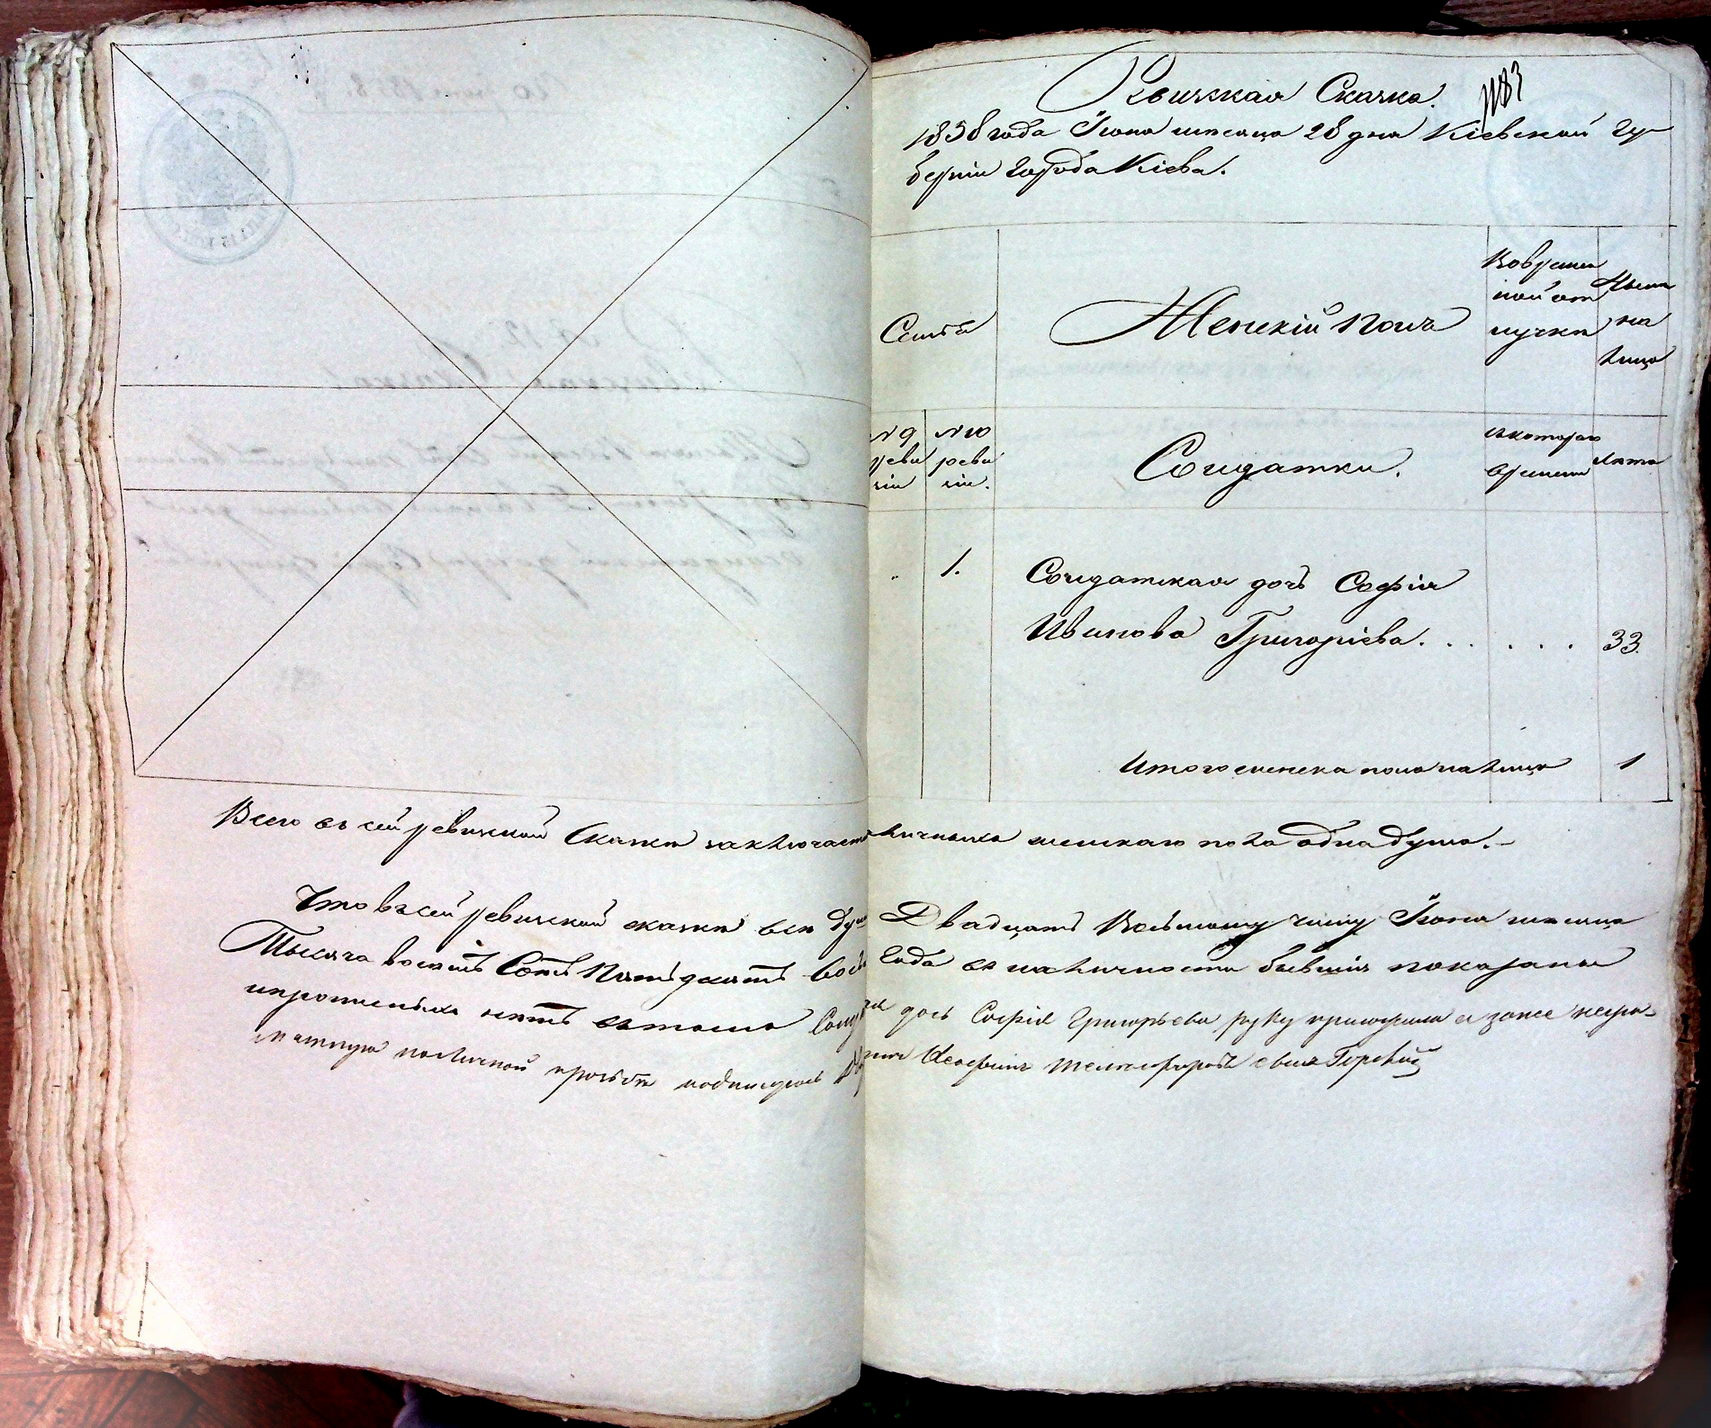 Ревизская Сказка.
1858 года Іюня месяца 28 дня Кіевской Гу-
берніи города Кіева.
Семьи
Женскій полъ
Во временной отлучке
Ныне на лицо
№ 9 ревизіи
№ 10 ревизіи.
Солдатки.
съ котораго времени
Лета
1.
Солдатская дочь Софія
Иванова Григоріева. . . . . . 33.
Итого женска пола на лицо 1
Всего въ сей ревизской Сказке заключается наличныхъ женскаго пола одна душа.-
Что въ сей ревизской сказке все ду Двадцать Восьмому числу Іюня месяца
Тысяча восемь Сотъ Пятьдесятъ Вось Года въ наличности бывшія показаны
и прописныхъ нетъ въ томъ Солдатская дочь Софія Григорьева руку приложила а заместо негра-
мотную по личной прозьбе подписался